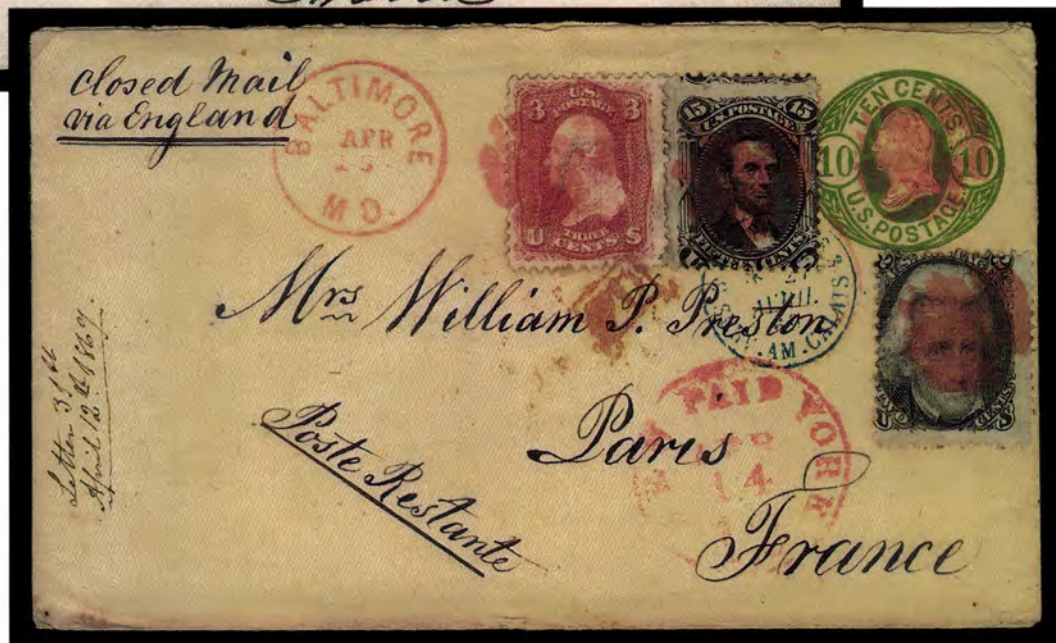 closed Mail
via England
BALTIMORE
APR
MD.
3 U.S. 3
POSTAGE
THREE
U CENTS S
15 15
U.S. POSTAGE
TEN CENTS
10 10
U.S. POSTAGE
Mrs William P. Preston
AM. CALAIS
U S
PAID
YORK
14
Paris
Poste Restante
France
Letter 31st
April 12th 1867.